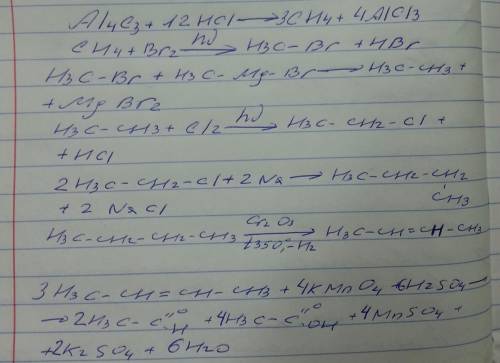 Al4C3 + 12HCl ⟶ 3CH4 + 4AlCl3
CH4 + Br2 —hν→ H3C–Br + HBr
H3C–Br + H3C–Mg–Br ⟶ H3C–CH3 +
+ MgBr2
H3C–CH3 + Cl2 —hν→ H3C–CH2–Cl +
+ HCl
2H3C–CH2–Cl + 2Na ⟶ H3C–CH2–CH2
CH3
+ 2NaCl
H3C–CH2–CH2–CH3 —Cr2O3→ H3C–CH=CH–CH3
t350,–H2
3H3C–CH=CH–CH3 + 4KMnO4 + 6H2SO4 ⟶
→ 2H3C–C=O–H + 4H3C–C=O–OH + 4MnSO4 +
+ 2K2SO4 + 6H2O